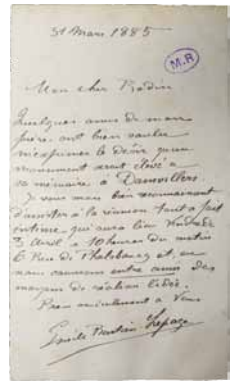 31 Mars 1885
M.R
Mon cher Rodin
Quelques amis de mon
frère ont bien voulu
m'exprimer le désir qu'un
monument serait élevé à
sa mémoire, à Damvillers
Je vous serais bien reconnaissant
d'assister à la réunion tout à fait
intime qui aura lieu Vendredi
3 Avril à 10 heures du matin
Rue de Phalsbourg et, où
nous causerons entre amis des
moyens de réaliser l'idée.
Bien cordialement à Vous
Emile Bastien Lepage